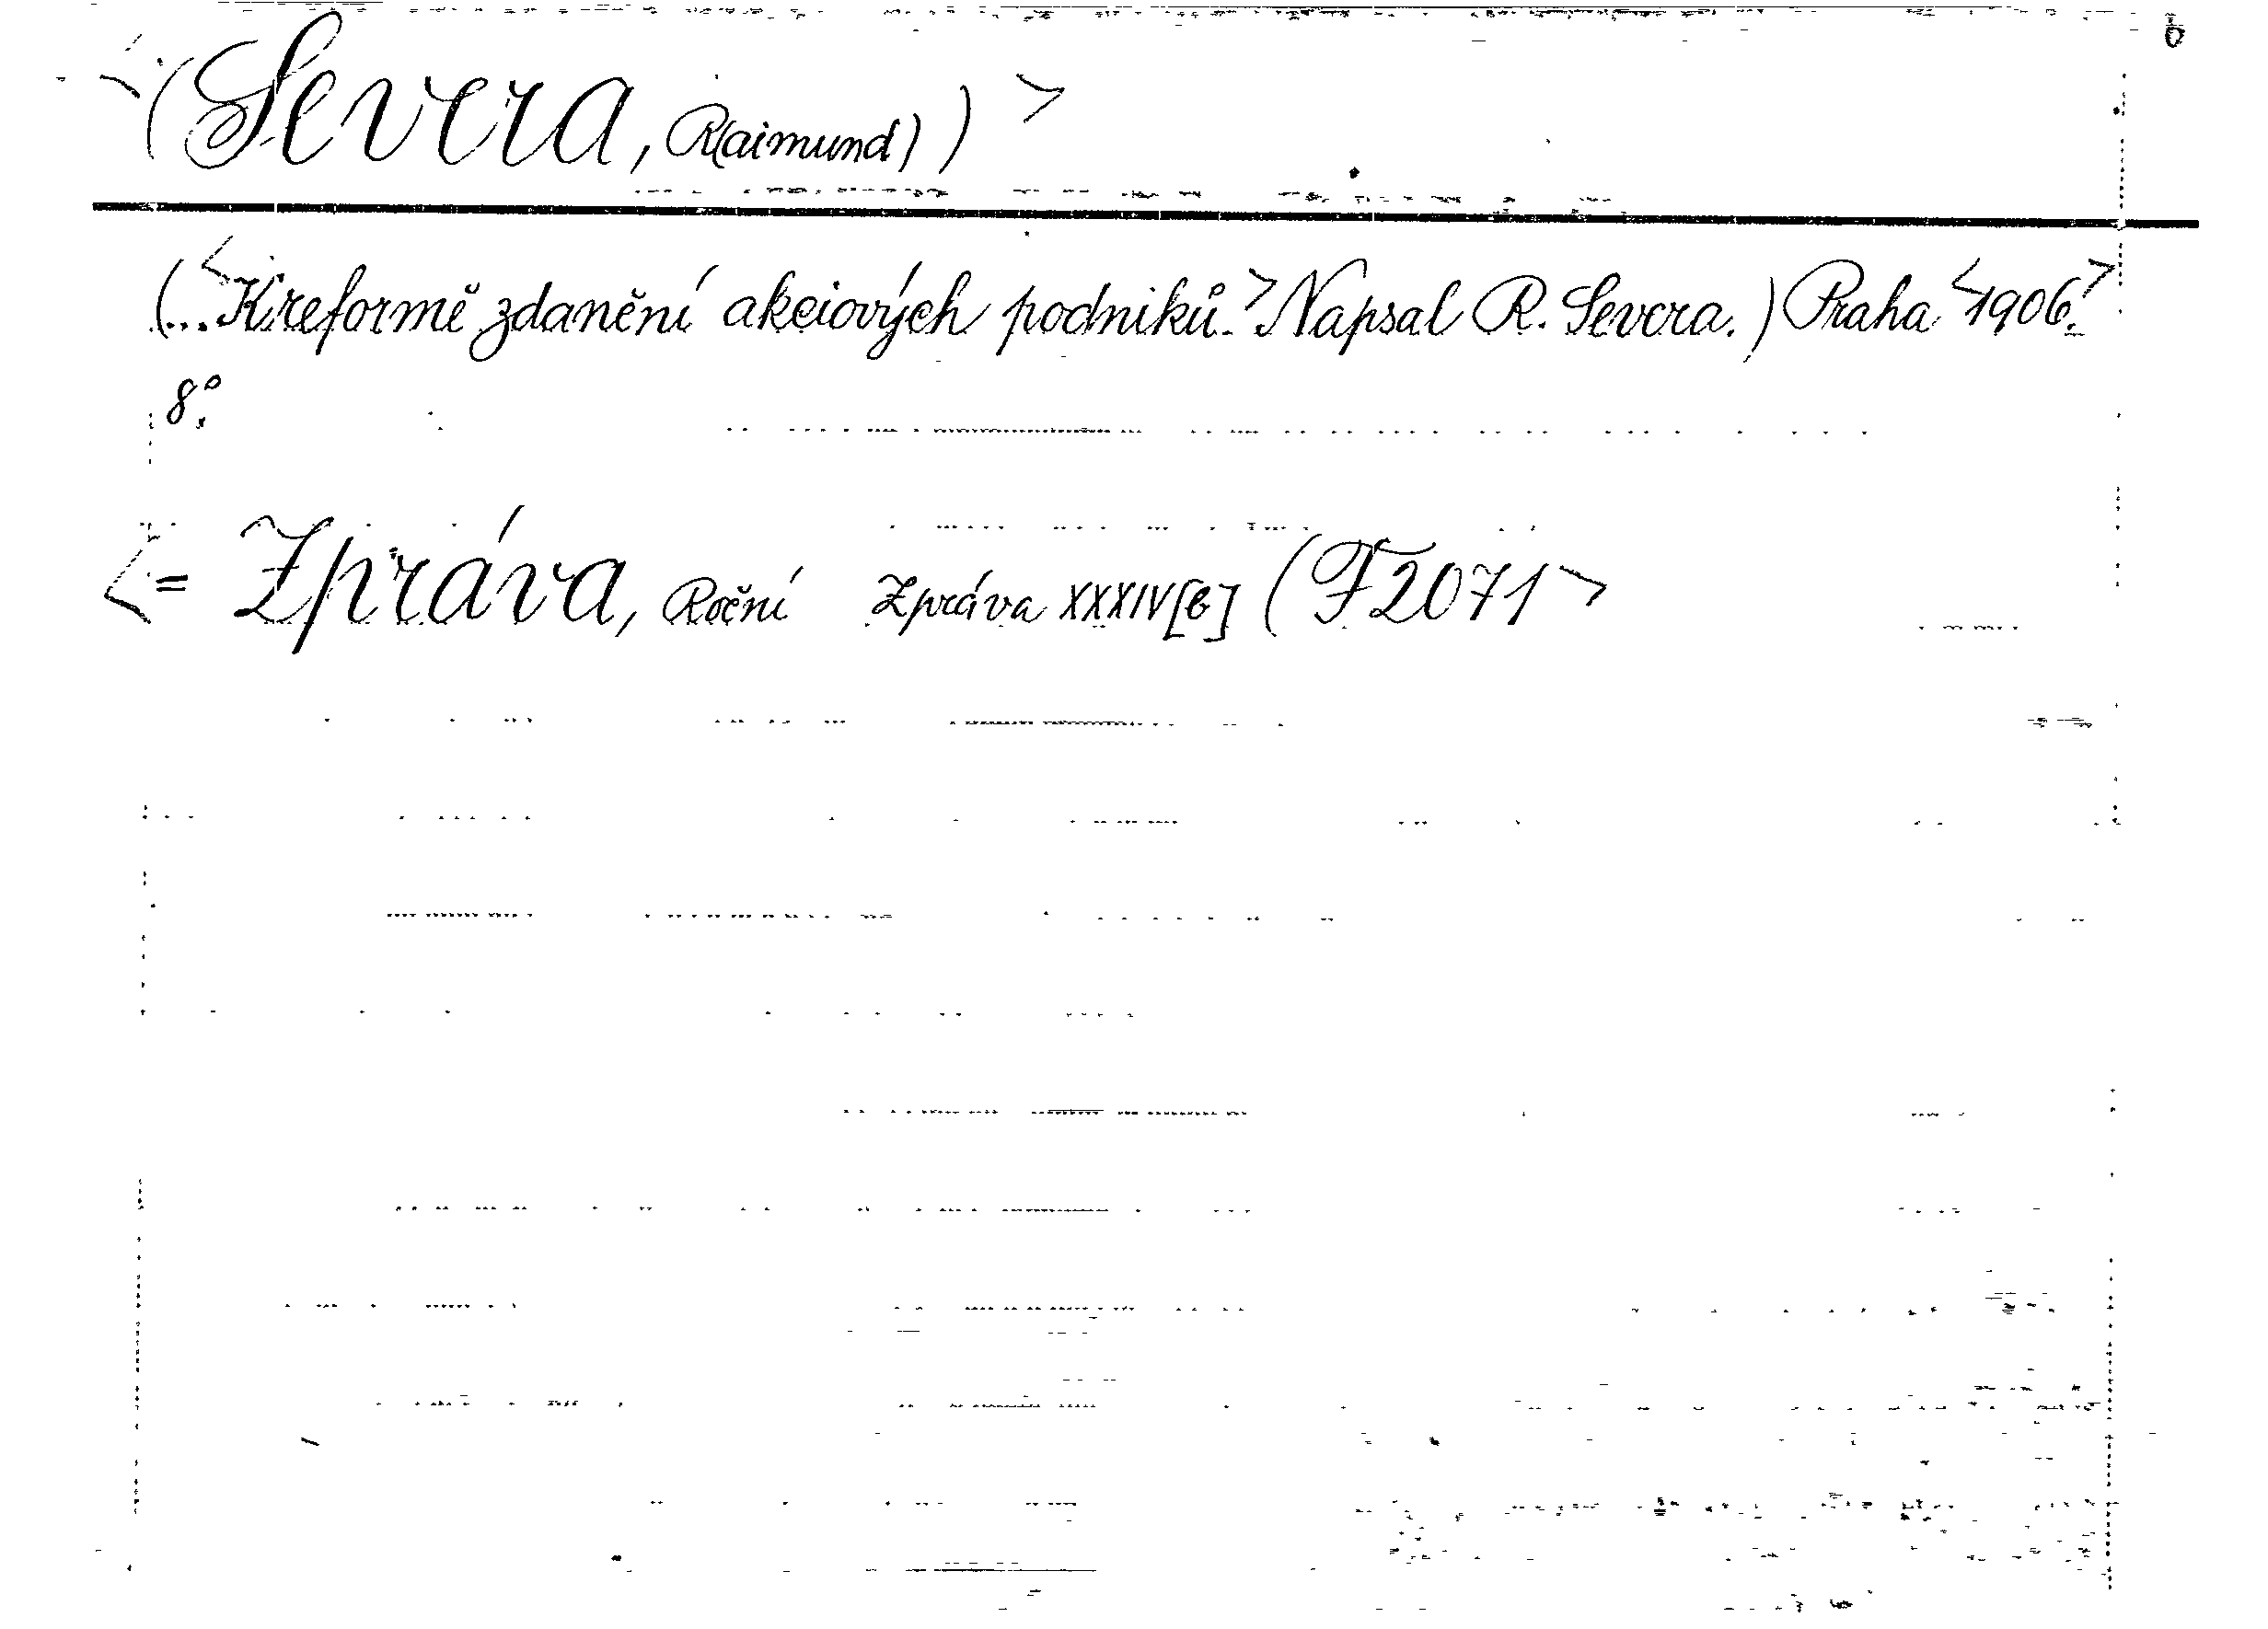 <(Severa, R(aimund))>
(...<K reformě zdanění akciových podniků.> Napsal R. Severa.) Praha <1906.>
8°.
<= Zpráva, Roční Zpráva XXXIV[b] (F2071>